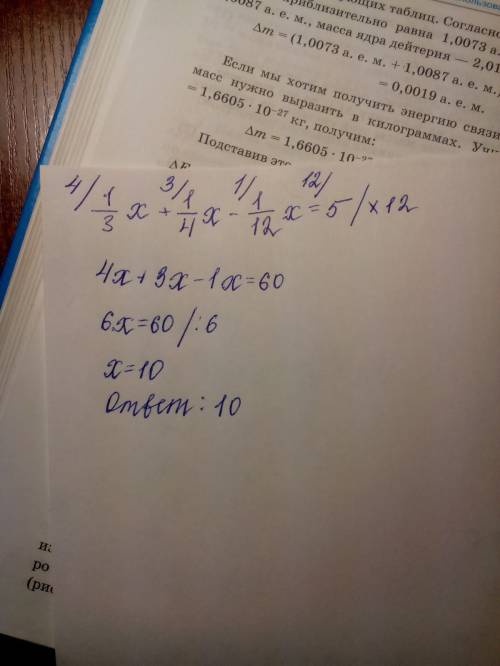 ующих таблиц. Согласно
приблизительно равна 1,0073 а.
0087 а. е. м., масса ядра дейтерия — 2,01
Δm = (1,0073 а. е. м. + 1,0087 а. е. м.
= 0,0019 а. е. м.
Если мы хотим получить энергию связи
масс нужно выразить в килограммах. Учи
= 1,6605 · 10⁻²⁷ кг, получим:
Δm = 1,6605 · 10⁻²⁷
Подставив это
ΔE
4/ 1/3 x + 3/ 1/4 x - 1/ 1/12 x = 12/ 5 / × 12
4x + 3x - 1x = 60
6x = 60 / : 6
x = 10
Ответ: 10
из
ро
(рис